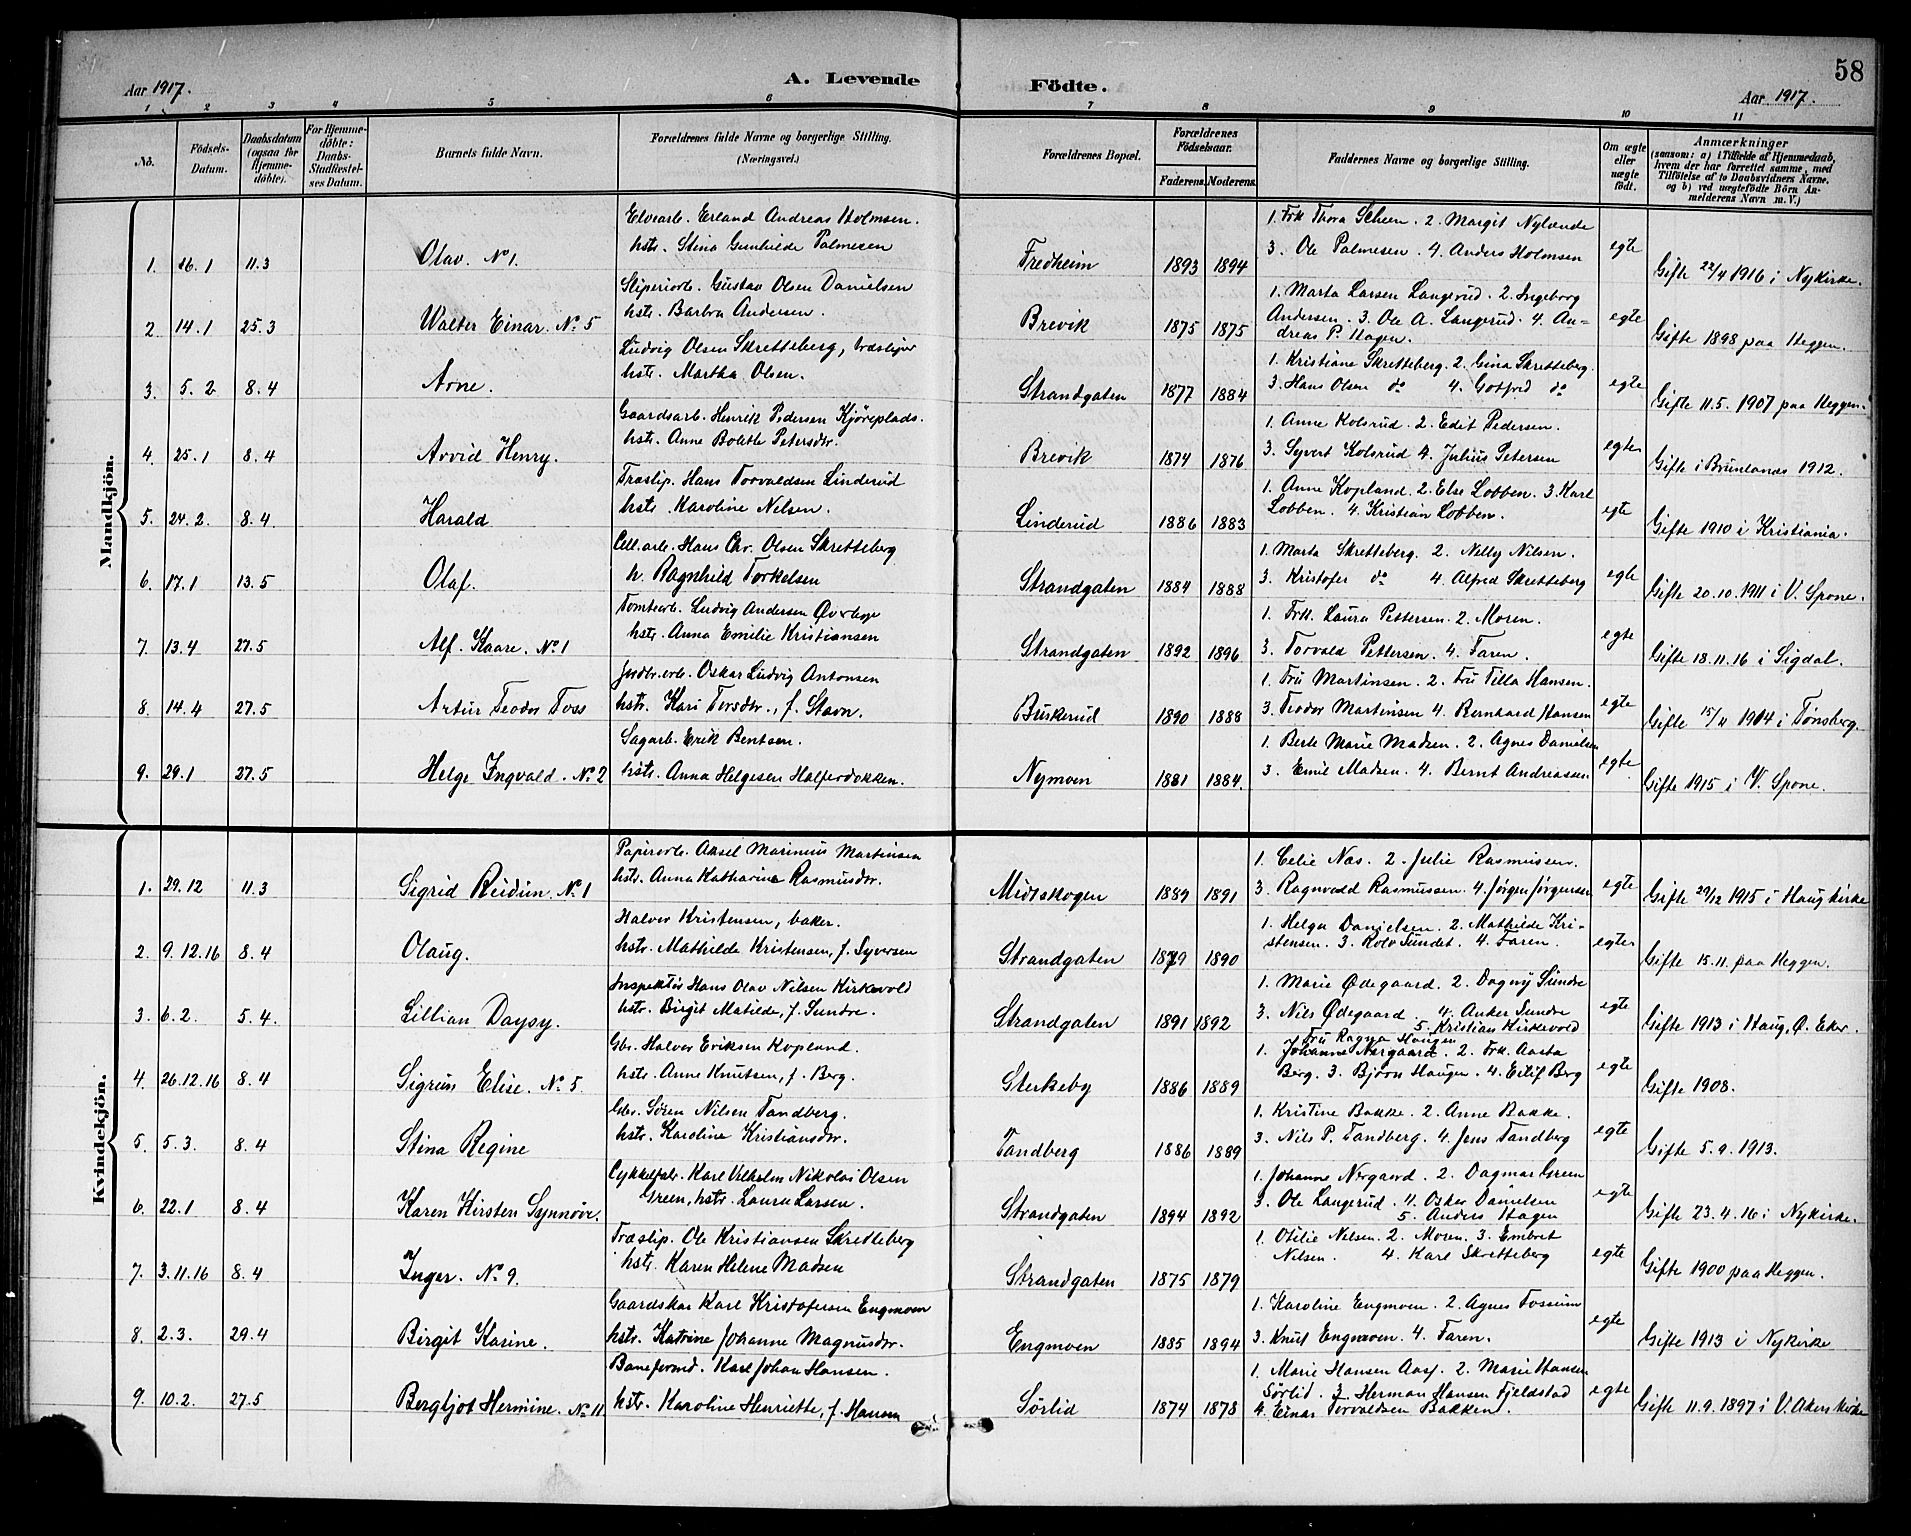 58
Aar 1917. A. Levende Födte. Aar 1917.
1 2 3 4 5 6 7 8 9 10 11
No.
Födsels-Datum.
Daabsdatum (ogsaa for Hjemme-döbte).
For Hjemme-döbte: Daabs-Stadfæstel-ses Datum.
Barnets fulde Navn.
Forældrenes fulde Navne og borgerlige Stilling. (Næringsvei.)
Forældrenes Bopæl.
Forældrenes Födselsaar.
Faderens. Moderens.
Faddernes Navne og borgerlige Stilling.
Om ægte eller uægte födt.
Anmærkninger (saasom: a) i Tilfælde af Hjemmedaab, hvem der har forrettet samme, med Tilföielse af to Daabsvidners Navne, og b) ved uægtefödte Börn Anmelderens Navn m. V.)
Mandkjön.
Elvearb. Erland Andreas Holmsen.
1. 16.1 11.3 Olav. No 1. hstr. Stina Gunhilde Palmesen Fredheim 1893 1894
1. Frk Thora Scheen. 2. Margit Nylænde
3. Ole Palmesen. 4. Anders Holmsen egte Gifte 22/4 1916 i Nykirke.
Sliperiarb. Gustav Olsen Danielsen
2 14.1 25.3 Walter Einar. No 5 hstr. Barbra Andersen. Brevik 1875 1875
1. Marta Larsen Langerud. 2. Ingeborg
Andersen. 3. Ole A. Langerud. 4. An=
dreas P. Hagen. egte Gifte 1898 paa Heggen.
Ludvig Olsen Skretteberg, træsliper
3. 5.2 8.4 Arne. hstr. Martha Olsen. Strandgaten 1877 1884
1. Kristiane Skretteberg. 2. Gina Skretteberg.
3. Hans Olsen do 4. Gotfred do egte Gifte 11.5.1907 paa Heggen.
Gaardsarb. Henrik Pedersen Kjöreplads.
4. 25.1 8.4 Arvid Henry. hstr. Anne Bolette Petersdr. Brevik 1874 1876
1. Anne Kolsrud. 2. Edit Pedersen.
3. Syvert Kolsrud 4. Julius Petersen egte Gifte i Brunlanæs 1912.
Træslip. Hans Torvaldsen Linderud
5. 24.2. 8.4. Harald hstr. Karoline Nelsen. Linderud 1886 1883
1. Anne Kopland. 2. Else Lobben. 3. Karl
Lobben. 4. Kristian Lobben. egte Gifte 1910 i Kristiania.
Cell.arb. Hans Chr. Olsen Skretteberg
6. 17.1 13.5 Olaf. h. Ragnhild Torkelsen Strandgaten 1884 1888
1. Marta Skretteberg. 2. Nelly Nilsen.
3. Kristofer do 4. Alfred Skretteberg egte Gifte 20.10.1911 i V. Spone.
Tomtearb. Ludvig Andersen Överbye
7. 13.4 27.5 Alf. Kaare. No 1 hstr. Anna Emilie Kristiansen Strandgaten 1892 1896
1. Frk. Laura Pettersen. 2. Moren.
3. Torvald Pettersen. 4. Faren. egte Gifte 18.11.16 i Sigdal.
Oskar Ludvig Antonsen
8. 14.4 27.5 Artur Teodor Foss hstr. Kari Torsdtr., f. Stavn. Buskerud 1890 1888
1. Fru Martinsen. 2. Fru Tilla Hansen.
3. Teodor Martinsen 4. Bernhard Hansen egte Gifte 15/11 1904 i Tønsberg.
Sagarb. Erik Bentsen.
9. 29.1 27.5 Helge Ingvald. No 2 hstr. Anna Helgesen Halfardokken. Nymoen 1881 1884.
1. Berte Marie Madsen. 2. Agnes Danielsen
3. Emil Madsen. 4. Bernt Andreassen egte. Gifte 1915 i V. Spone.
Kvindekjön.
Papirarb. Aksel Marinius Martinsen
1. 29.12 11.3 Sigrid Reidun. No 1 hstr. Anna Katharine Rasmusdr. Midtskogen 1889 1891
1. Celie Næs. 2. Julie Rasmussen.
3. Ragnvald Rasmussen. 4. Jørgen Jørgensen egte Gifte 29/12 1915 i Haug kirke
Halvor Kristensen, baker.
2. 9.12.16 8.4 Olaug. hstr. Mathilde Kristensen, f. Syversen Strandgaten 1879 1890
1. Helga Danielsen. 2. Mathilde Kri-
stensen. 3. Rolv Sundet. 4. Faren. egte Gifte 15.11. paa Heggen.
Inspektör Hans Olav Nilsen Kirkevold
3. 6.2. 5.4. Lillian Daysy. hstr. Birgit Matilde, f. Sundre. Strandgaten 1891 1892
1. Marie Ødegaard. 2. Dagny Sundre
3. Nils Ødegaard 4. Anker Sundre
5. Kristian Kirkevold egte Gifte 1913 i Haug, Ö. Eker.
Gbr. Halvor Eriksen Kopland.
4. 26.12.16 8.4 Sigrun Elise. No. 5. hstr. Anne Knutsen, f. Berg. Sterkeby 1886 1889
Fru Ragna Haugen
1. Johanne Nergaard. 2. Frk. Aasta
Berg. 3. Björn Haugen. 4. Eilif Berg egte Gifte 1908.
Gbr. Sören Nilsen Tandberg.
5. 5.3. 8.4 Stina Regine hstr. Karoline Kristiansdr. Tandberg 1886 1889
1. Kristine Bakke. 2. Anne Bakke.
3. Nils P. Tandberg. 4. Jens Tandberg egte Gifte 5.9.1913.
Cykkelfabr. Karl Vilhelm Nikolai Olsen
6. 22.1 8.4 Karen Kirsten Synnøve. Green, hstr. Laura Larsen. Strandgaten 1894 1892
1. Johanne Nergaard. 2. Dagmar Green
3. Ole Langerud. 4. Oskar Danielsen
5. Anders Hagen egte Gifte 23.4.16 i Nykirke.
Træslip. Ole Kristiansen Skretteberg
7. 3.11.16 8.4 Inger. No 9. hstr. Karen Helene Madsen Strandgaten 1875 1879
1. Otilie Nelsen. 2. Moren. 3. Embret
Nelsen. 4. Karl Skretteberg egte Gifte 1900 paa Heggen.
Gaardskar Karl Kristofersen Engmoen
8. 2.3. 29.4 Birgit Karine. hstr. Katrine Johanne Magnusdr. Engmoen 1885 1894
1. Karoline Engmoen. 2. Agnes Fossum
3. Knut Engmoen. 4. Faren. egte Gifte 1913 i Nykirke
Baneformd. Karl Johan Hansen.
9. 10.2. 27.5 Bergljot Hermine. No 11 hstr. Karoline Henriette, f. Hansen Sörlid 1874 1878
1. Marie Hansen Aas. 2. Marie Hansen
Sörlid. 3. Herman Hansen Fjeldstad
4. Einar Torvaldsen Bakken. egte Gifte 11.9.1897 i V. Akers kirke